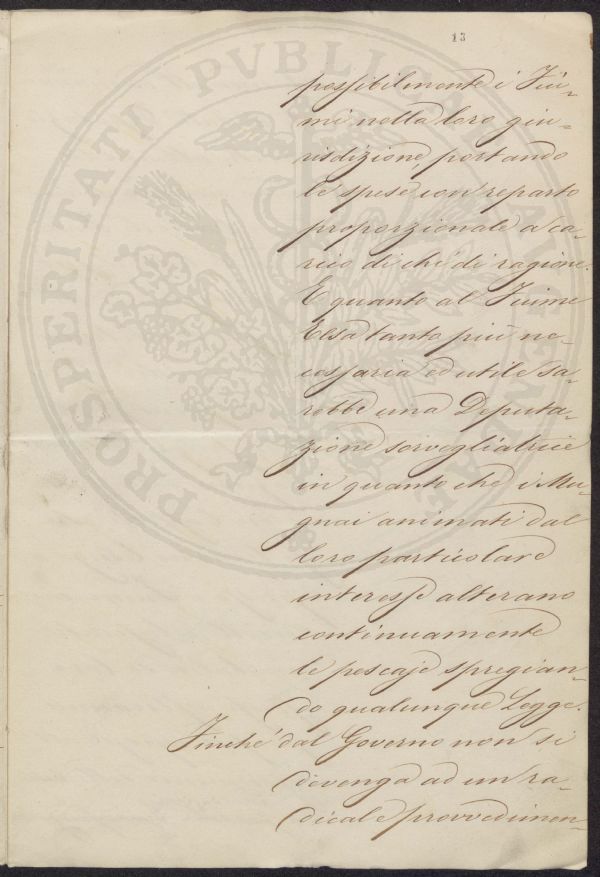 13
possibilmente i Fiu-
mi nella loro giu-
risdizione, portando
le spese con reparto
proporzionale a ca-
rico di chi di ragione.
E quanto al Fiume
Elsa tanto più ne-
cessaria ed utile sa-
rebbe una Deputa-
zione sorvegliatrice
in quanto che i Mu-
gnai animati dal
loro particolare
interesse alterano
continuamente
le pescaje spregian-
do qualunque Legge.
Finché dal Governo non si
devenga ad un ra-
dicale provvedimen-
PROSPERITATI PVBLICAE AVGENDAE